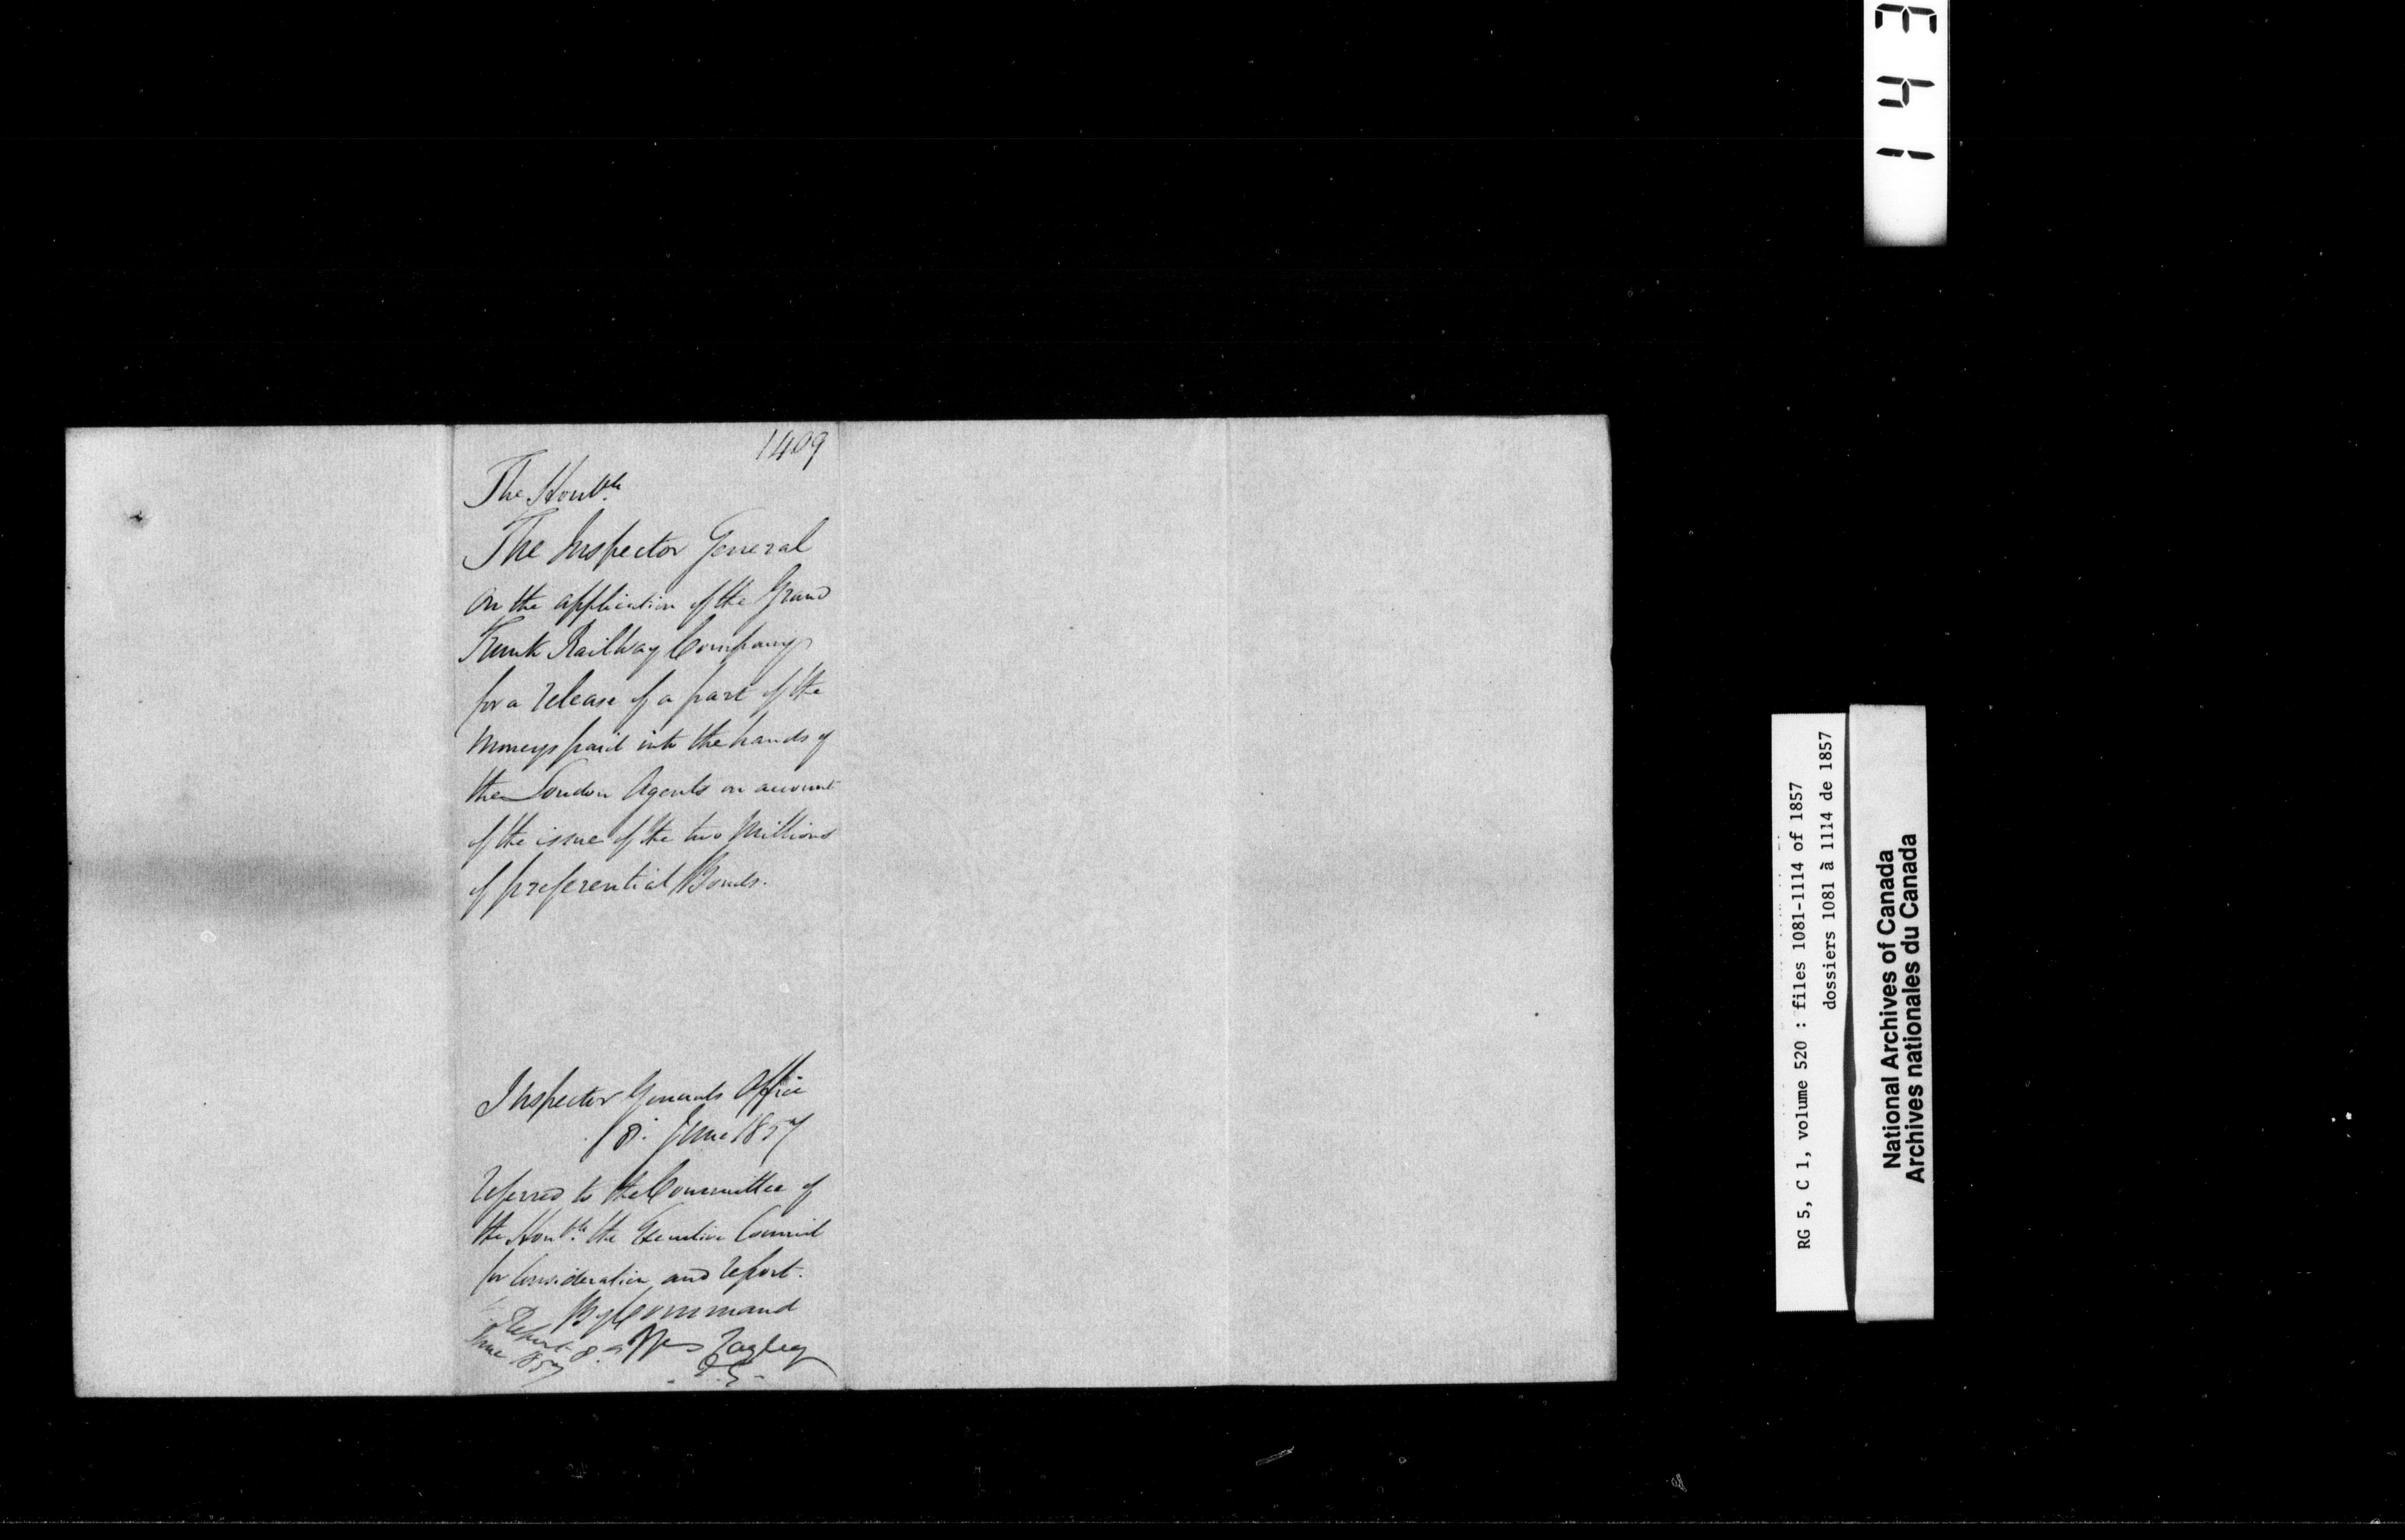 1409
The Honble.
The Inspector General
on the application of the Grand
Trunk Railway Company
for a release of a part of the
Moneys paid into the hands of
the London Agents on account
of the issue of the two Millions
of preferential Bonds.
Inspector Generals Office
8. June 1857
Referred to the Committee of
the Honble. the Executive Council
for Consideration and report.
By Command
Report 8
June 1857
143
RG 5, C 1, volume 520 : files 1081-1114 of 1857
dossiers 1081 à 1114 de 1857
National Archives of Canada
Archives nationales du Canada